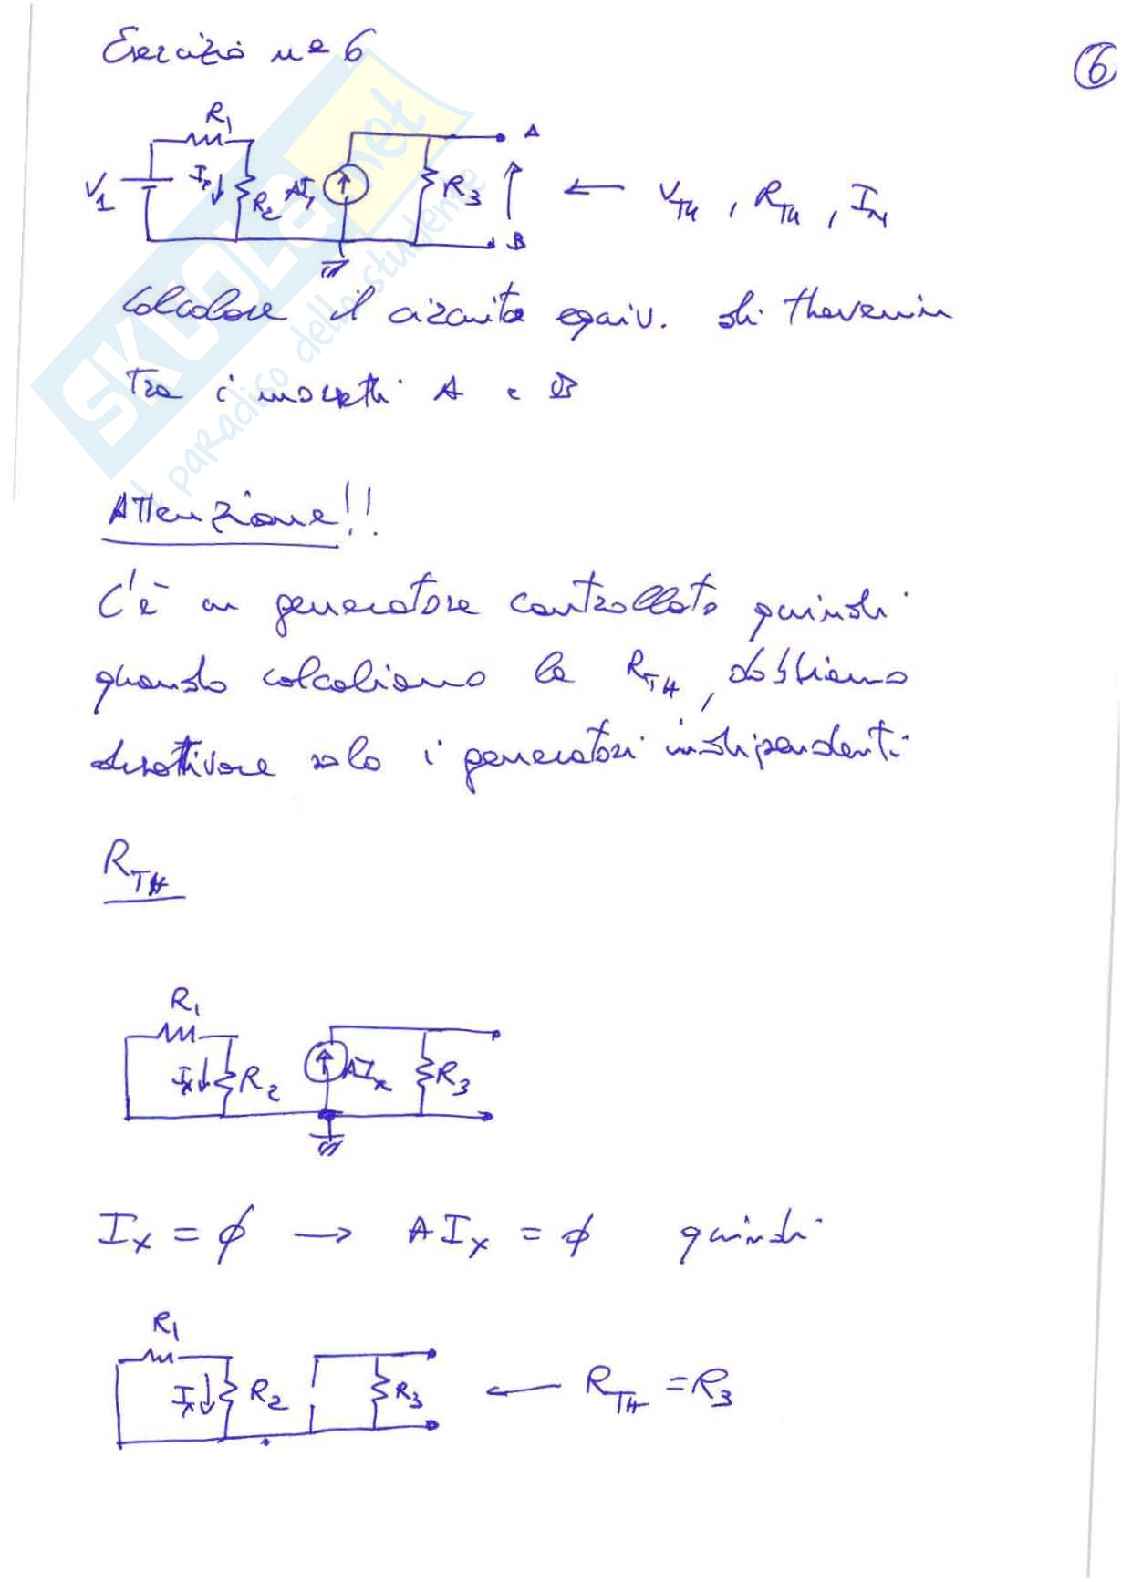 Esercizio n° 6
6
R1
V1
Ix
R2
AIx
R3
A
B
← VTH, RTH, IN
Calcolare il circuito equiv. di Thevenin
tra i morsetti A e B
Attenzione!!
C'è un generatore controllato quindi
quando calcoliamo la RTH, dobbiamo
disattivare solo i generatori indipendenti
RTH
R1
Ix
R2
AIx
R3
Ix = ∅ → AIx = ∅ quindi
R1
Ix
R2
R3
← RTH = R3
SKUOLA.net
il paradiso dello studente